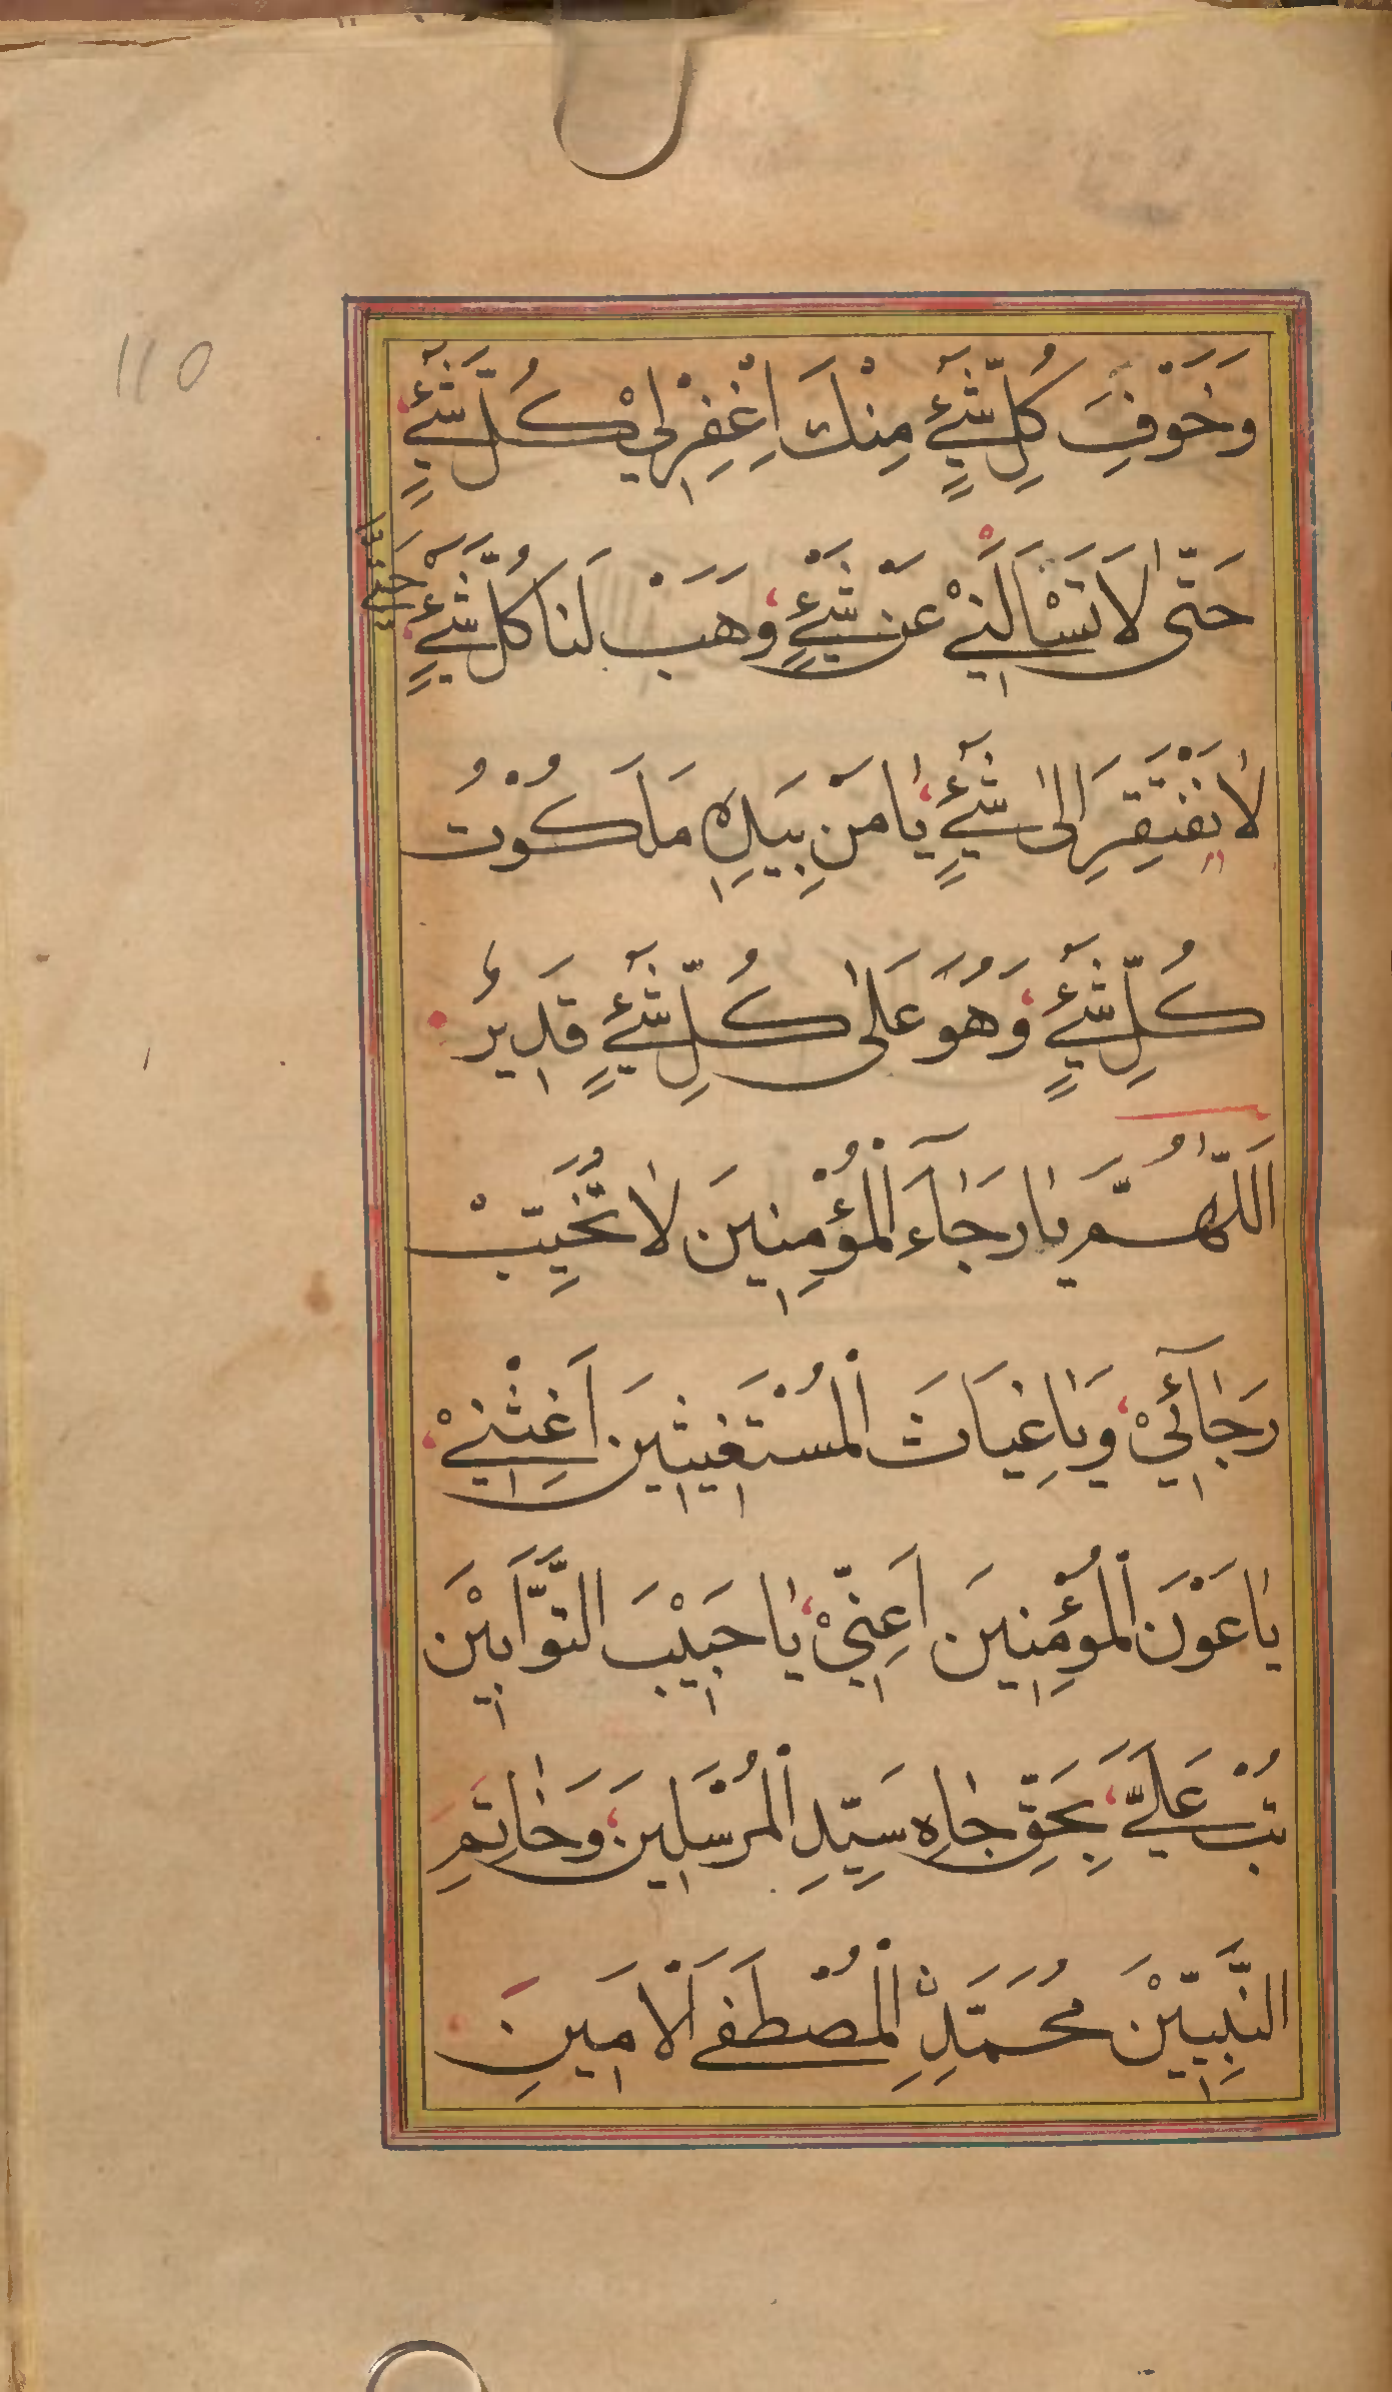 110
وَخَوْفِ كُلِّ شَيْءٍ مِنْكَ اِغْفِرْلِيْ كُلَّ شَيْءٍ
حَتّٰى لَا تَسْاَلَنِيْ عَنْ شَيْءٍ وَهَبْ لَنَا كُلَّ شَيْءٍ حَتّٰى
لَا نَفْتَقِرَ اِلٰى شَيْءٍ يَا مَنْ بِيَدِهٖ مَلَكُوْتُ
كُلِّ شَيْءٍ وَهُوَ عَلٰى كُلِّ شَيْءٍ قَدِيرٌ
اَللّٰهُمَّ يَا رَجَآءَ الْمُؤْمِنِينَ لَا تُخَيِّبْ
رَجَآئِيْ وَيَاغِيَاثَ الْمُسْتَغِيثِينَ اَغِثْنِيْ
يَاعَوْنَ الْمُؤْمِنِينَ اَعِنِّيْ يَا حَبِيْبَ التَّوَّابِيْنَ
تُبْ عَلَيَّ بِحَقِّ جَاهِ سَيِّدِ الْمُرْسَلِينَ وَخَاتِمِ
النَّبِيِّيْنَ مُحَمَّدِنِ الْمُصْطَفَى الْاَمِينِ